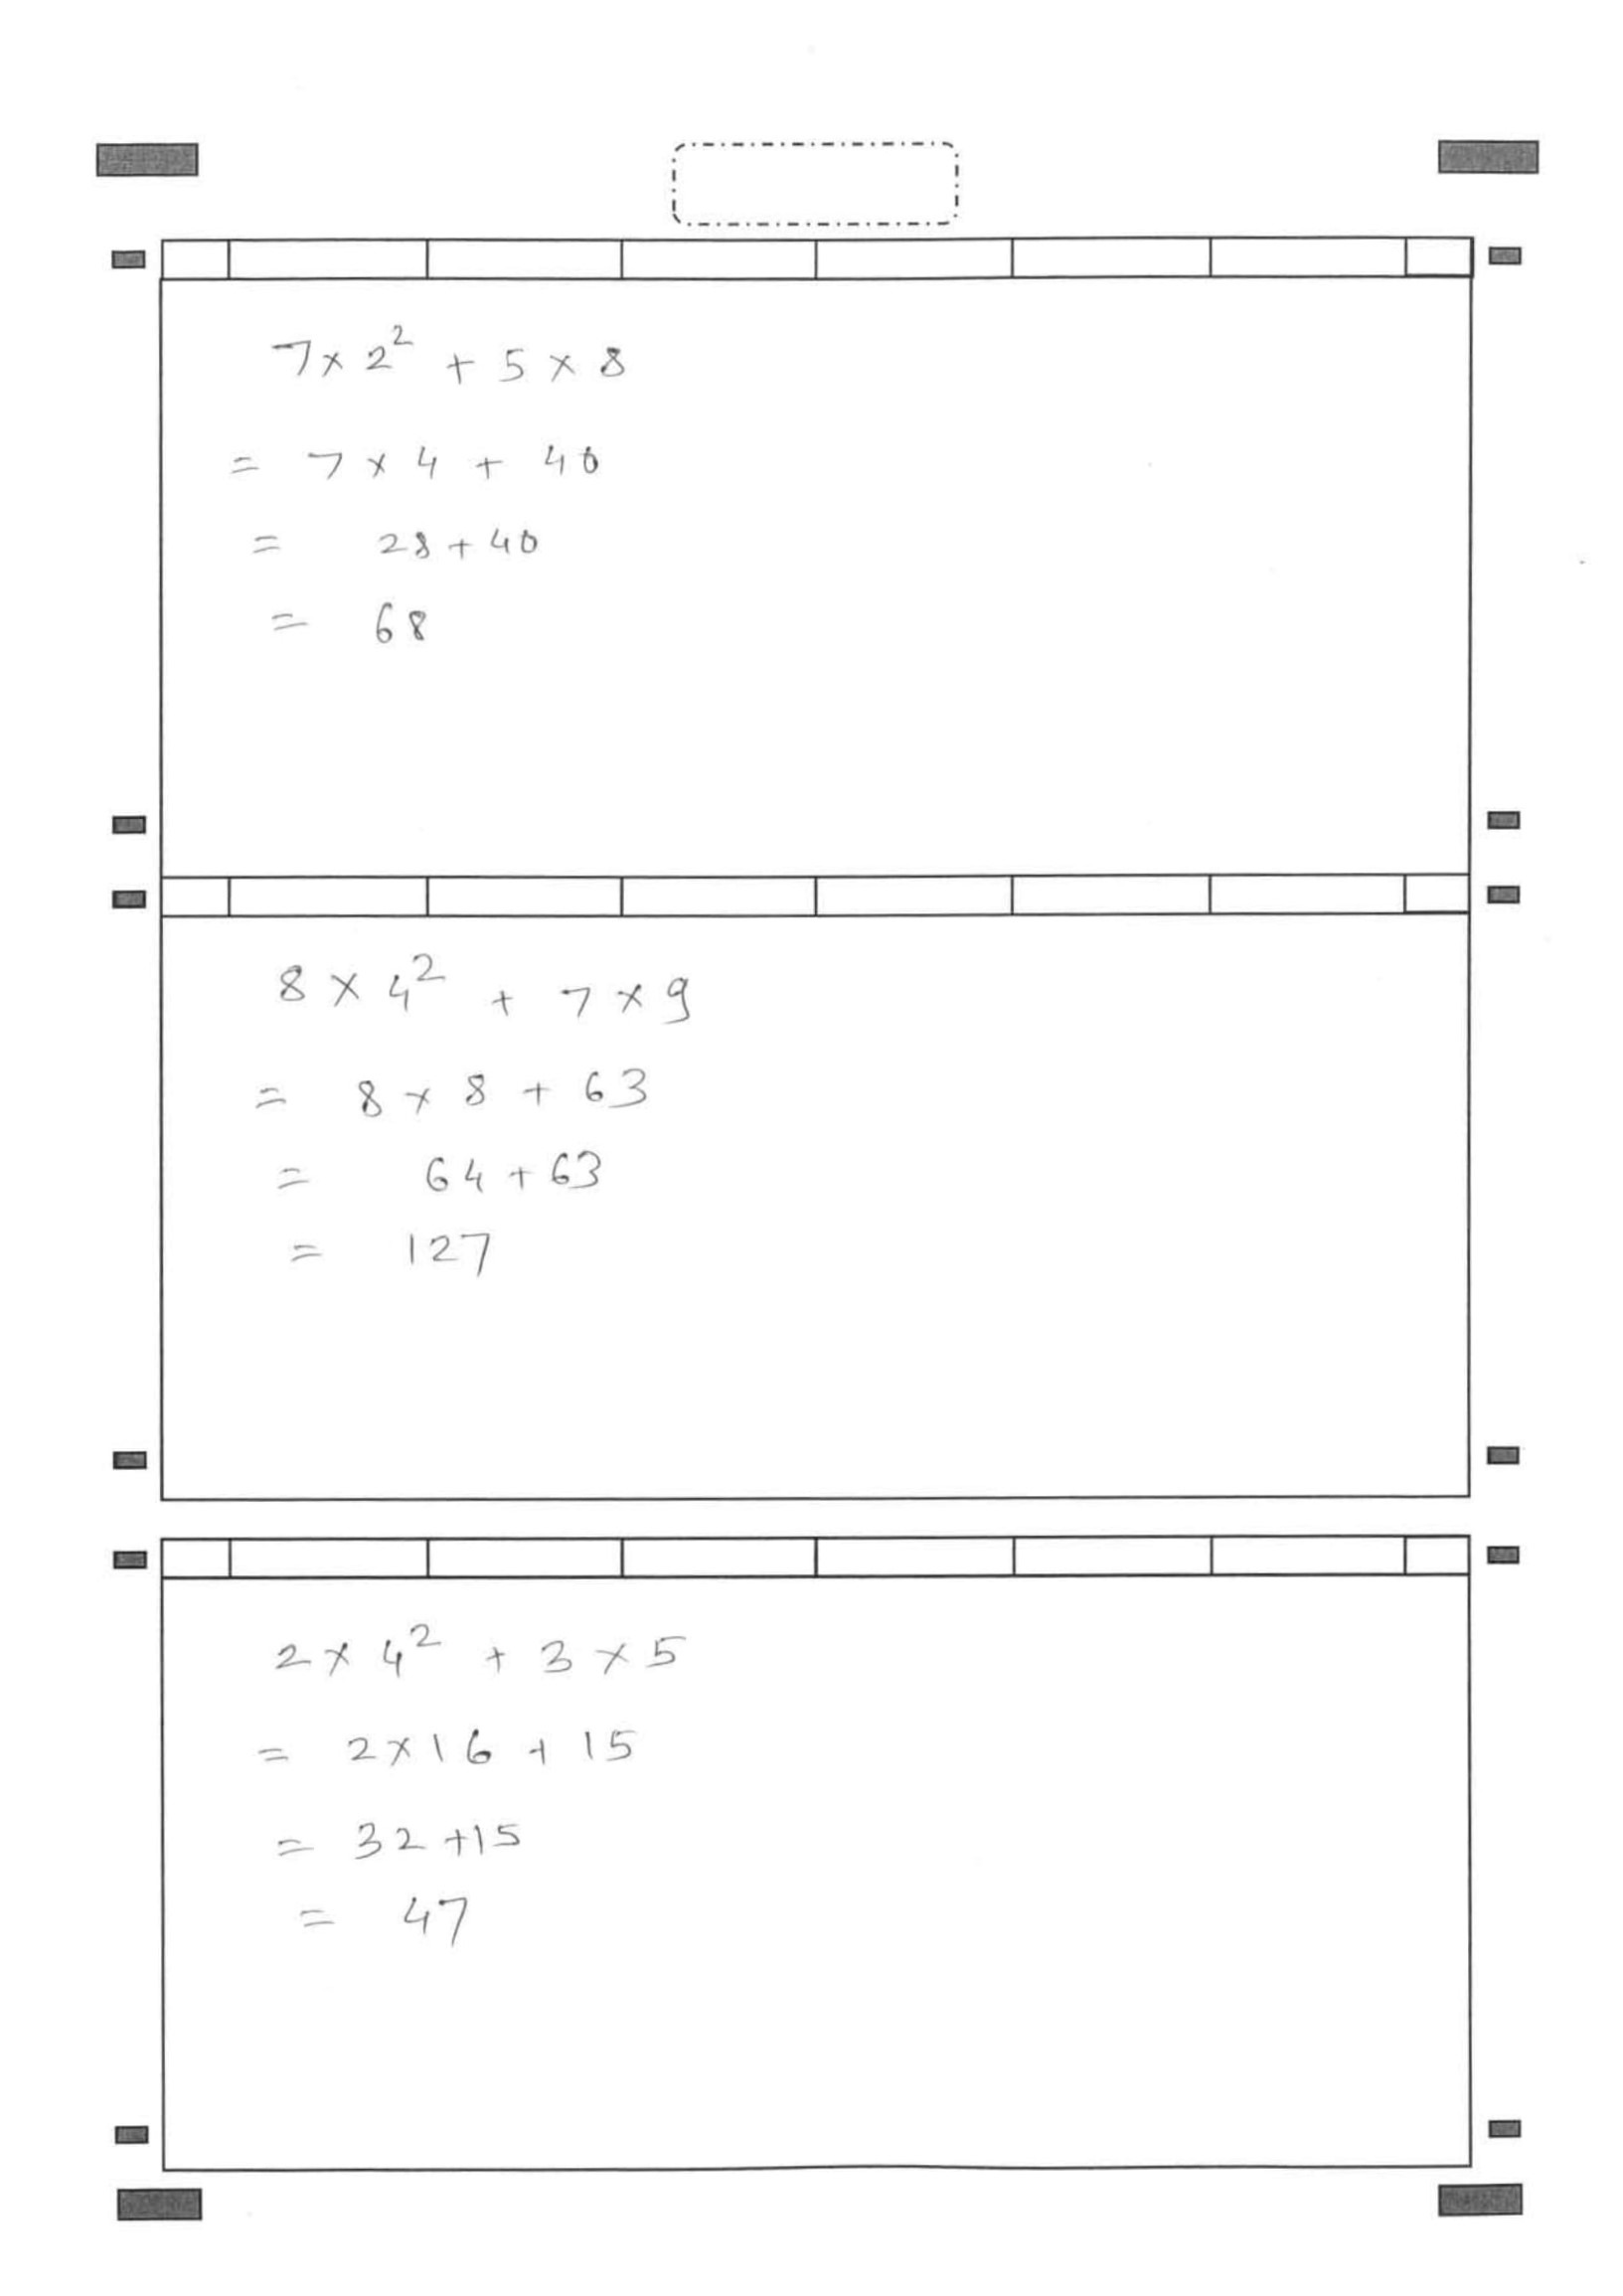 7 × 2² + 5 × 8
= 7 × 4 + 40
= 28 + 40
= 68
8 × 4² + 7 × 9
= 8 × 8 + 63
= 64 + 63
= 127
2 × 4² + 3 × 5
= 2 × 16 + 15
= 32 + 15
= 47